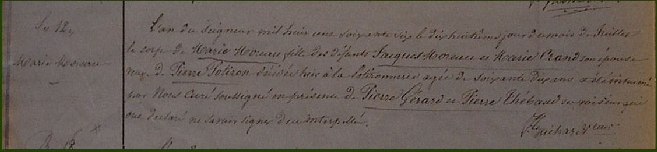 N° 12
Marie Moreau
L'an du Seigneur mil huit cent soixante six le dix huitième jour du mois de Juillet
le corps de Marie Moreau fille des défunts Jacques Moreau et Marie Giraud son épouse
de Pierre Potiron décédée hier à la agée de soixante dix ans a été inhumé
par Nous Curé soussigné en présence de Pierre Gérard et Pierre Thébaud qui
ont déclaré ne savoir signer de ce interpellés.
Guichard curé